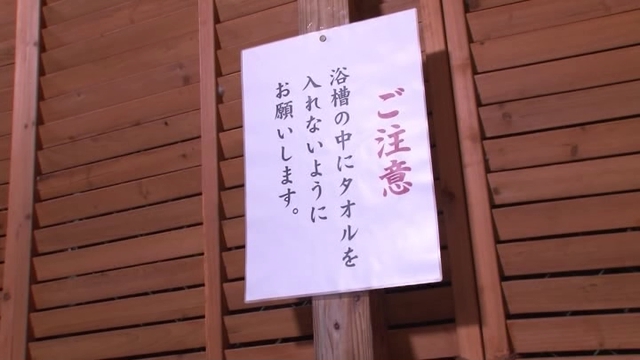 ご注意
浴槽の中にタオルを
入れないように
お願いします。